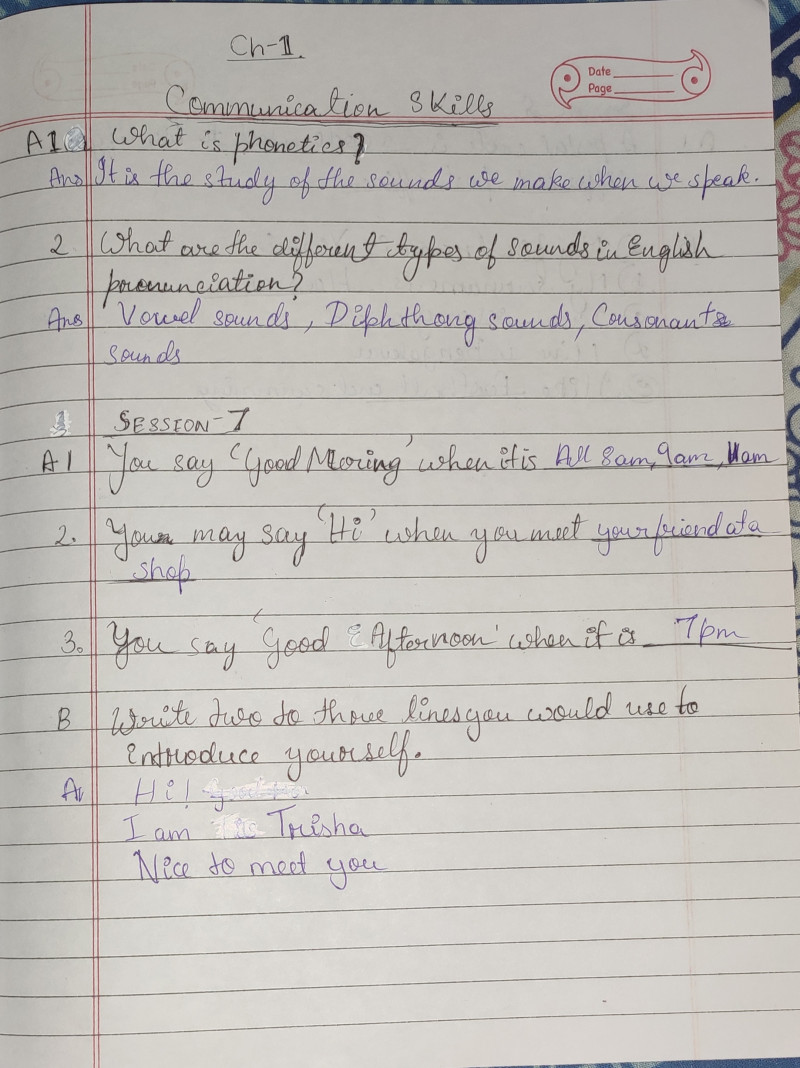 Ch-1.
Date
Page
Communication Skills
A1 What is phonetics?
Ans It is the study of the sounds we make when we speak.
2 What are the different types of sounds in English
pronunciation?
Ans Vowel sounds, Diphthong sounds, Consonants
sounds
SESSION-7
A1 You say 'Good Moring' when it is All 8am, 9am, 11am
2. You may say 'Hi' when you meet your friend at a
shop
3. You say 'Good Afternoon' when it is 7pm
B Write two to three lines you would use to
introduce yourself.
A Hi!
I am Trisha
Nice to meet you